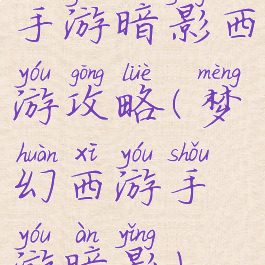 手游暗影西
yóu gōng lüè mèng
游攻略(梦
huàn xī yóu shǒu
幻西游手
yóu àn yǐng
游暗影)